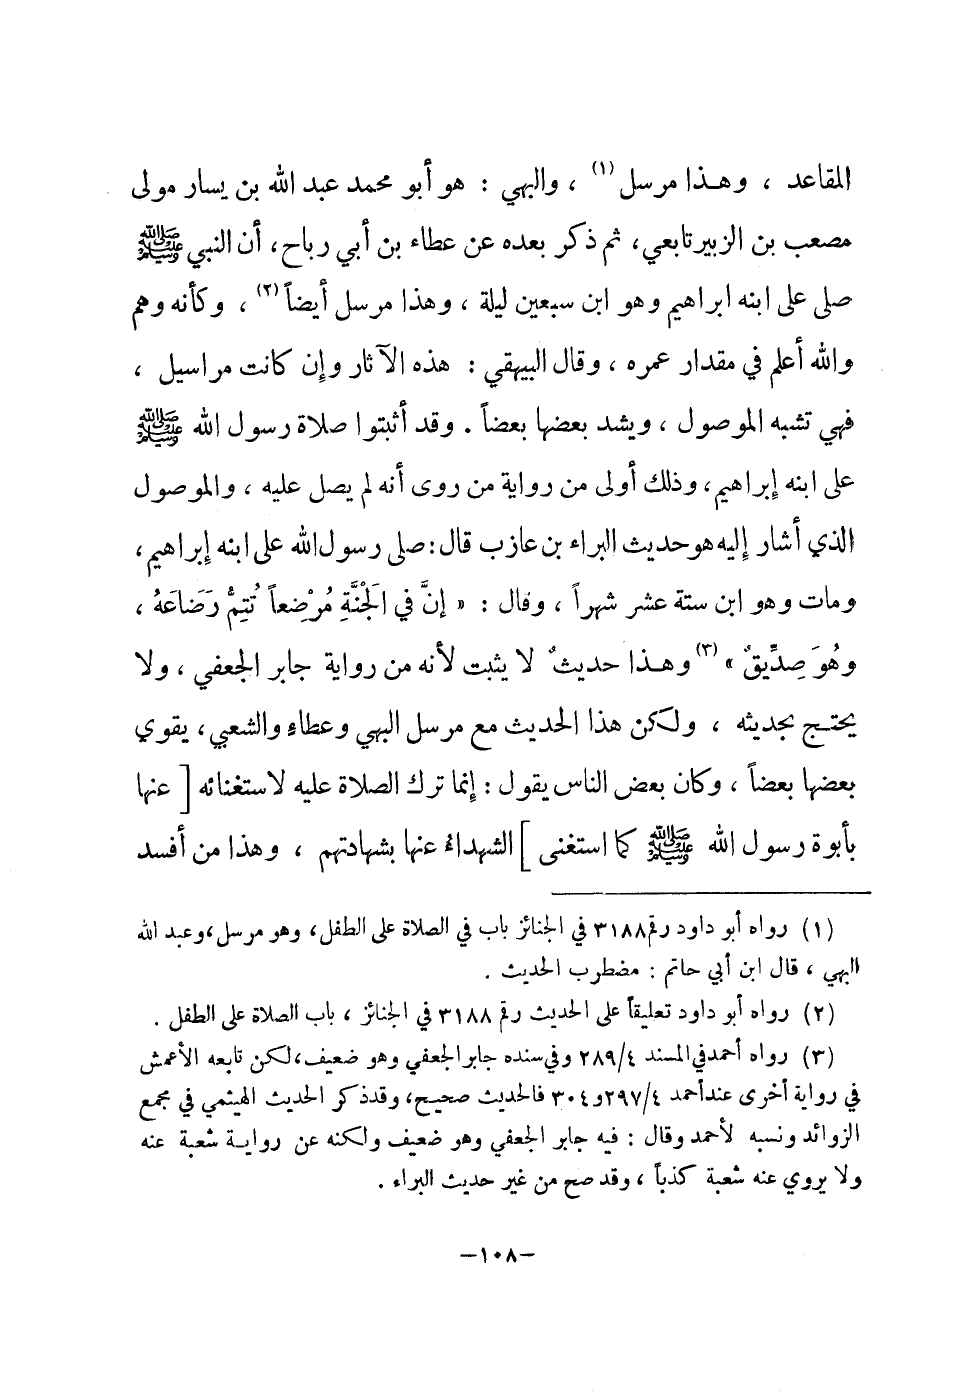 المقاعد ، وهـذا مرسل (١) ، والبهي : هو أبو محمد عبد الله بن يسار مولى
مصعب بن الزبير تابعي، ثم ذكر بعده عن عطاء بن أبي رباح، أن النبي ﷺ
صلى على ابنه ابراهيم وهو ابن سبعين ليلة ، وهذا مرسل أيضاً (٢) ، وكأنه وهم
والله أعلم في مقدار عمره ، وقال البيهقي : هذه الآثار وإن كانت مراسيل ،
فهي تشبه الموصول ، ويشد بعضها بعضاً . وقد أثبتوا صلاة رسول الله ﷺ
على ابنه إبراهيم، وذلك أولى من رواية من روى أنه لم يصل عليه ، والموصول
الذي أشار إليه هو حديث البراء بن عازب قال: صلى رسول الله على ابنه إبراهيم،
ومات وهو ابن ستة عشر شهراً ، وقال : « إنَّ في الجَنَّةِ مُرْضِعاً تُتِمُّ رَضَاعَهُ ،
وهُوَ صِدِّيقٌ » (٣) وهـذا حديثٌ لا يثبت لأنه من رواية جابر الجعفي ، ولا
يحتـج بحديثه ، ولكن هذا الحديث مع مرسل البهي وعطاء والشعبي، يقوي
بعضها بعضاً ، وكان بعض الناس يقول : إنما ترك الصلاة عليه لاستغنائه [ عنها
بأبوة رسول الله ﷺ كما استغنى ] الشهداء عنها بشهادتهم ، وهذا من أفسد
(١) رواه أبو داود رقم ٣١٨٨ في الجنائز باب في الصلاة على الطفل، وهو مرسل، وعبد الله
البهي ، قال ابن أبي حاتم : مضطرب الحديث .
(٢) رواه أبو داود تعليقاً على الحديث رقم ٣١٨٨ في الجنائز ، باب الصلاة على الطفل .
(٣) رواه أحمد في المسند ٢٨٩/٤ وفي سنده جابر الجعفي وهو ضعيف، لكن تابعه الأعمش
في رواية أخرى عند أحمد ٢٩٧/٤ و٣٠٤ فالحديث صحيح، وقد ذكر الحديث الهيثمي في مجمع
الزوائد ونسبه لأحمد وقال : فيه جابر الجعفي وهو ضعيف ولكنه عن روايـة شعبة عنه
ولا يروي عنه شعبة كذباً ، وقد صح من غير حديث البراء .
-١٠٨-